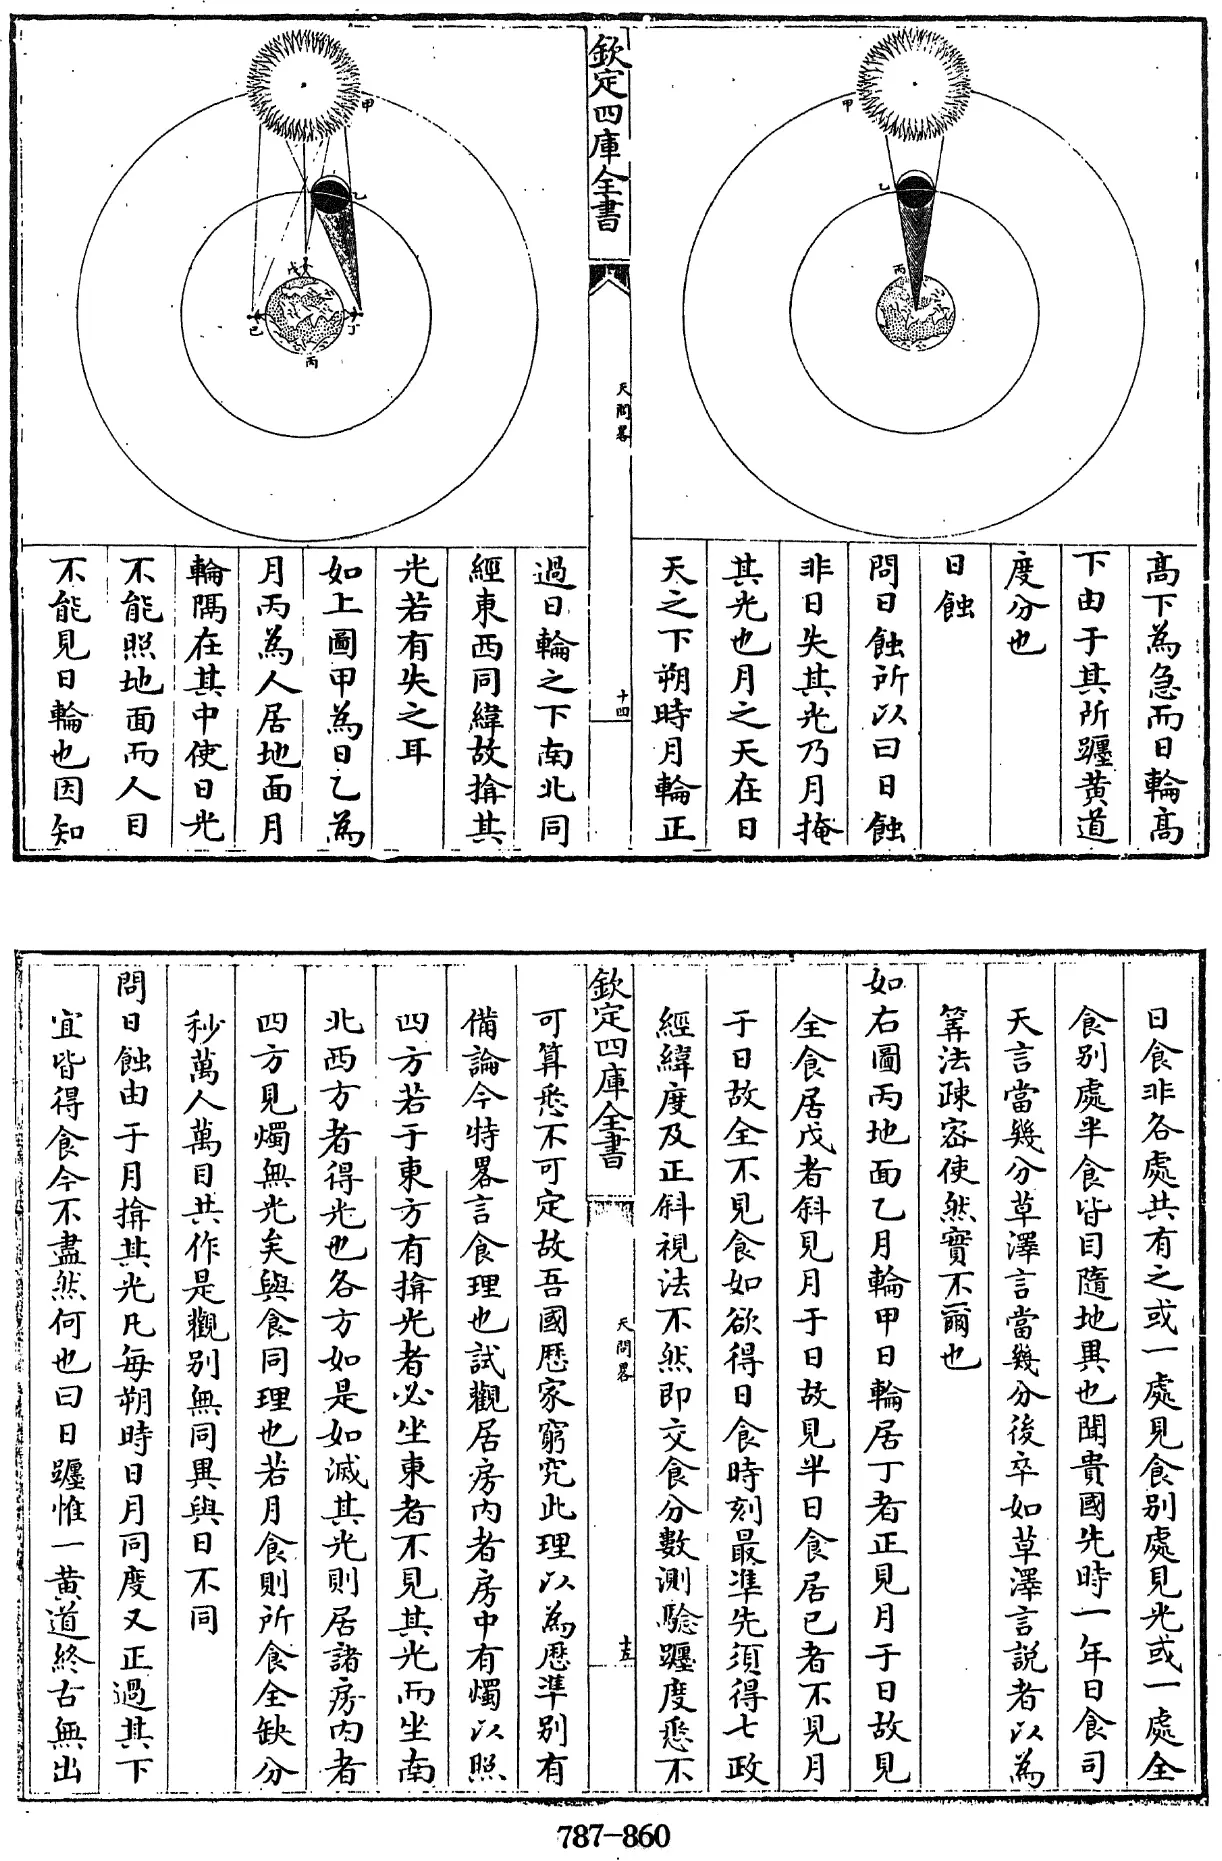 甲
乙
丙
高下為急而日輪高
下由于其所躔黄道
度分也
日蝕
問日蝕所以曰日蝕
非日失其光乃月掩
其光也月之天在日
天之下朔時月輪正
欽定四庫全書
天問畧
十四
甲
乙
戊
己
丁
丙
過日輪之下南北同
經東西同緯故揜其
光若有失之耳
如上圖甲為日乙為
月丙為人居地面月
輪隅在其中使日光
不能照地面而人目
不能見日輪也因知
日食非各處共有之或一處見食别處見光或一處全
食别處半食皆目隨地異也聞貴國先時一年日食司
天言當幾分草澤言當幾分後卒如草澤言説者以為
筭法疎宻使然實不爾也
如右圖丙地面乙月輪甲日輪居丁者正見月于日故見
全食居戊者斜見月于日故見半日食居已者不見月
于日故全不見食如欲得日食時刻最準先須得七政
經緯度及正斜視法不然即交食分數測驗躔度悉不
欽定四庫全書
天問畧
十五
可算悉不可定故吾國厯家窮究此理以為厯準别有
備論今特畧言食理也試觀居房内者房中有燭以照
四方若于東方有揜光者必坐東者不見其光而坐南
北西方者得光也各方如是如滅其光則居諸房内者
四方見燭無光矣與食同理也若月食則所食全缺分
秒萬人萬目共作是觀别無同異與日不同
問日蝕由于月揜其光凡每朔時日月同度又正過其下
宜皆得食今不盡然何也曰日躔惟一黄道終古無出
787-860